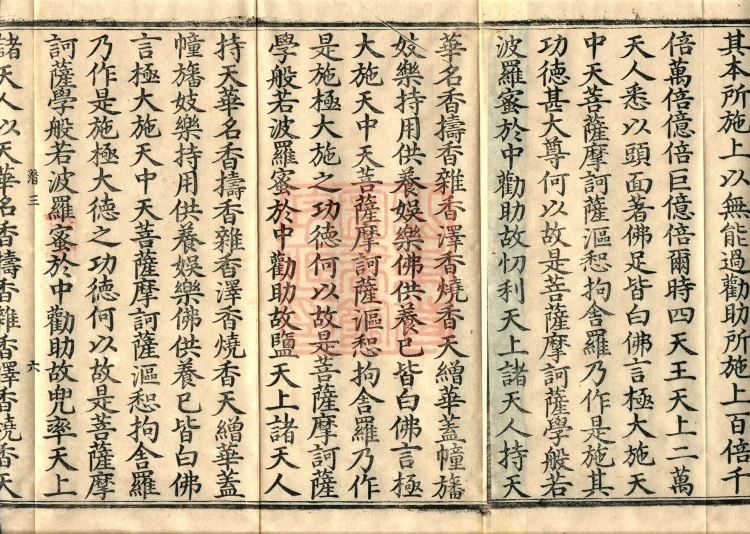 其本所施上以無能過勸助所施上百倍千
倍萬倍億倍巨億倍爾時四天王天上二萬
天人悉以頭面著佛足皆白佛言極大施天
中天菩薩摩訶薩漚惒拘舍羅乃作是施其
功德甚大尊何以故是菩薩摩訶薩學般若
波羅蜜於中勸助故忉利天上諸天人持天
華名香擣香雜香澤香燒香天繒華蓋幢旛
妓樂持用供養娛樂佛供養已皆白佛言極
大施天中天菩薩摩訶薩漚惒拘舍羅乃作
是施極大施之功德何以故是菩薩摩訶薩
學般若波羅蜜於中勸助故鹽天上諸天人
持天華名香擣香雜香澤香燒香天繒華蓋
幢旛妓樂持用供養娛樂佛供養已皆白佛
言極大施天中天菩薩摩訶薩漚惒拘舍羅
乃作是施極大德之功德何以故是菩薩摩
訶薩學般若波羅蜜於中勸助故兜率天上
三 六
諸天人以天華名香擣香雜香澤香燒香天